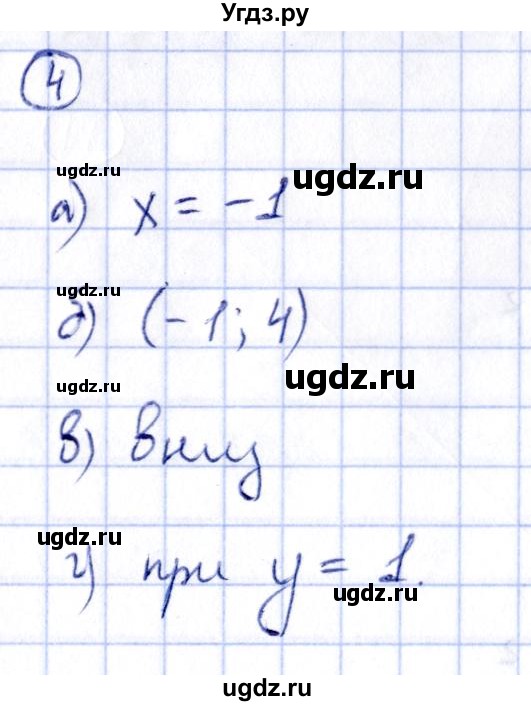 Угдз.ру
4
ugdz.ru
ugdz.ru
а) x = -1
ugdz.ru
б) (-1; 4)
ugdz.ru
ugdz.ru
в) вниз
ugdz.ru
г) при y = 1.
ugdz.ru
ugdz.ru